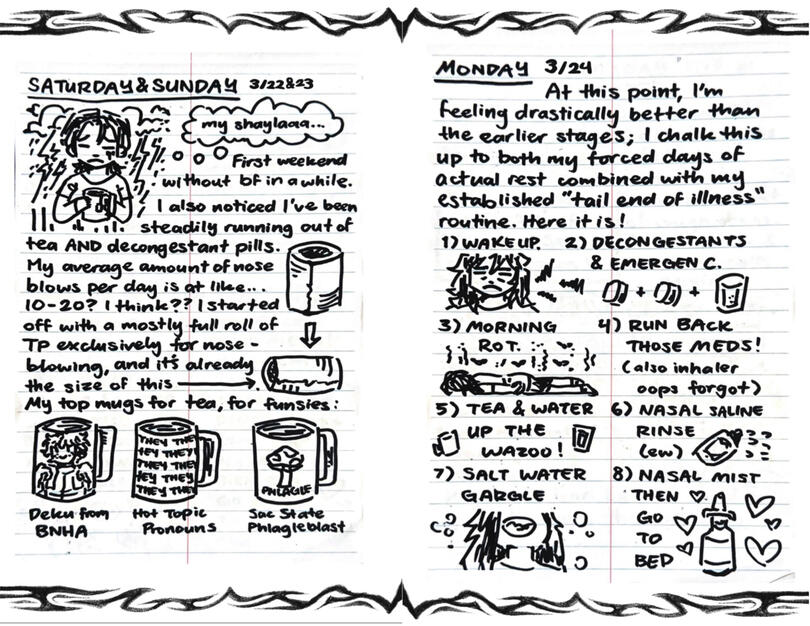 SATURDAY & SUNDAY 3/22&23
my shaylaaa...
First weekend
without bf in a while.
I also noticed I've been
steadily running out of
tea AND decongestant pills.
My average amount of nose
blows per day is at like...
10-20? I think?? I started
off with a mostly full roll of
TP exclusively for nose-
blowing, and it's already
the size of this
My top mugs for tea, for funsies:
THEY THE
HEY THEY
THEY THE
HEY THEY
THEY THE
PHLAGLE
Deku from
BNHA
Hot Topic
Pronouns
Sac State
Phlagleblast
MONDAY 3/24
At this point, I'm
feeling drastically better than
the earlier stages; I chalk this
up to both my forced days of
actual rest combined with my
established "tail end of illness"
routine. Here it is!
1) WAKE UP.
2) DECONGESTANTS
& EMERGEN C.
+ +
3) MORNING
ROT.
4) RUN BACK
THOSE MEDS!
(also inhaler
oops forgot)
5) TEA & WATER
UP THE
WAZOO!
6) NASAL SALINE
RINSE
(ew)
7) SALT WATER
GARGLE
8) NASAL MIST
THEN
GO
TO
BED